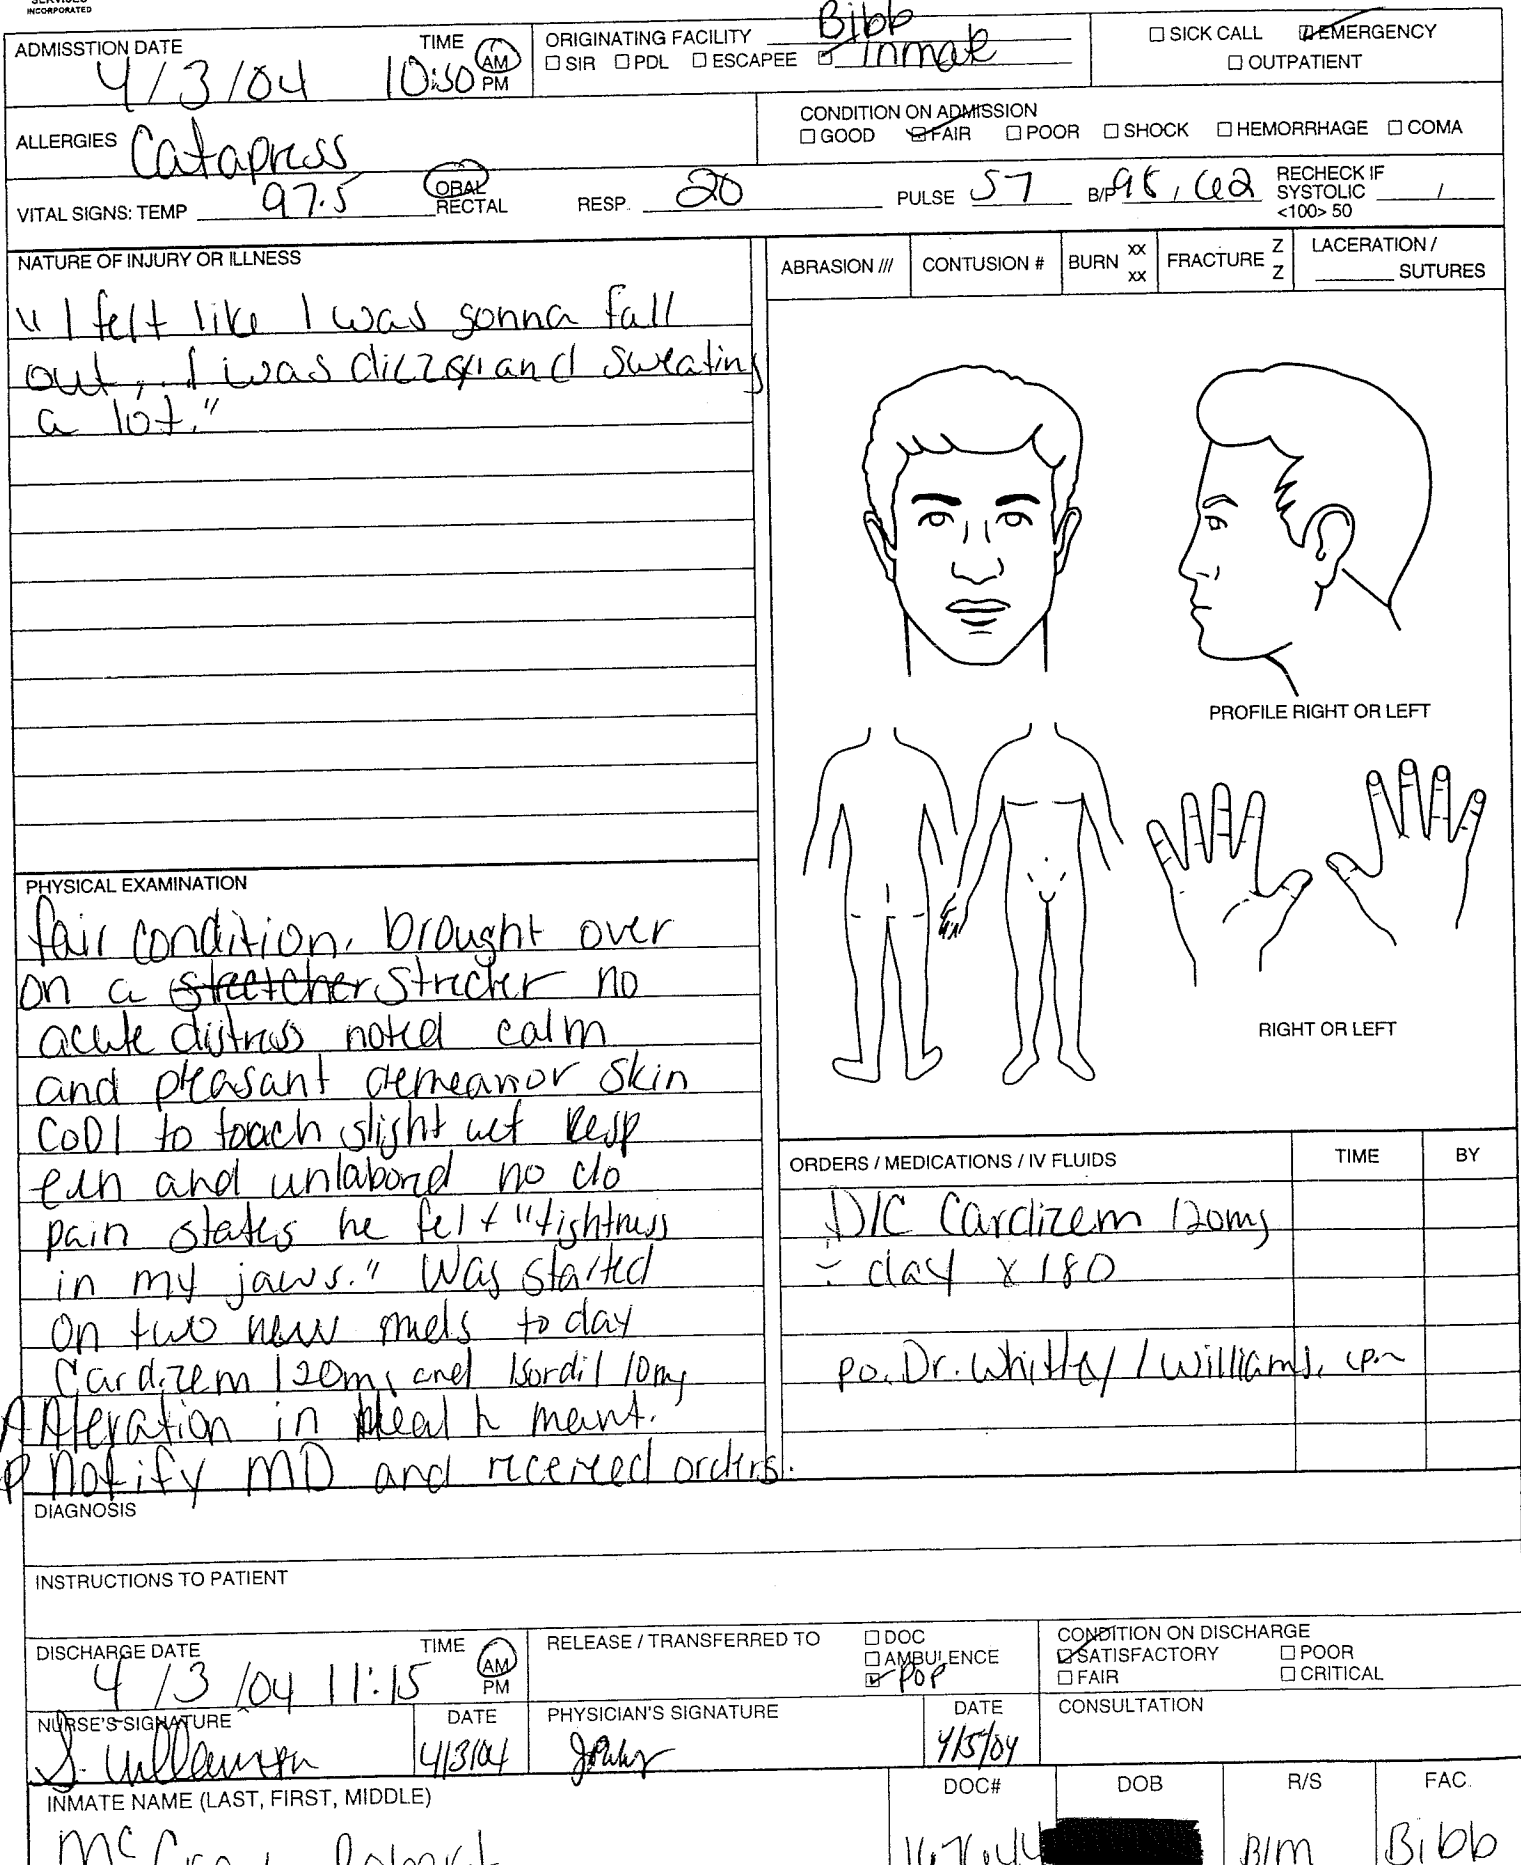 INCORPORATED
ADMISSTION DATE
4/3/04
TIME
10:30 AM
PM
ORIGINATING FACILITY Bibb
☐ SIR ☐ PDL ☐ ESCAPEE ☑ inmate
☐ SICK CALL ☑ EMERGENCY
☐ OUTPATIENT
ALLERGIES Catapress
CONDITION ON ADMISSION
☐ GOOD ☑ FAIR ☐ POOR ☐ SHOCK ☐ HEMORRHAGE ☐ COMA
VITAL SIGNS: TEMP 97.5 ORAL
RECTAL
RESP. 20
PULSE 57
B/P 98, 62
RECHECK IF
SYSTOLIC /
<100> 50
NATURE OF INJURY OR ILLNESS
"I felt like I was gonna fall
out, I was dizzy and sweating
a lot."
ABRASION /// CONTUSION # BURN xx
xx
FRACTURE Z
Z
LACERATION /
SUTURES
PROFILE RIGHT OR LEFT
RIGHT OR LEFT
PHYSICAL EXAMINATION
fair condition. brought over
on a stretcher strecter no
acute distress noted calm
and pleasant demeanor skin
cool to touch slight wet Resp
even and unlabored no c/o
pain states he felt "tightness
in my jaws." Was started
on two new meds today
Cardizem 120mg and Isordil 10mg
A Alteration in Health maint.
P Notify MD and received orders.
ORDERS / MEDICATIONS / IV FLUIDS TIME BY
D/C Cardizem 120mg
day x 180
po. Dr. Whitley / Williams, lpn
DIAGNOSIS
INSTRUCTIONS TO PATIENT
DISCHARGE DATE
4/3/04
TIME
11:15 AM
PM
RELEASE / TRANSFERRED TO
☐ DOC
☐ AMBULENCE
☑ POP
CONDITION ON DISCHARGE
☑ SATISFACTORY ☐ POOR
☐ FAIR ☐ CRITICAL
NURSE'S SIGNATURE
S.
DATE
4/3/04
PHYSICIAN'S SIGNATURE
DATE
4/5/04
CONSULTATION
INMATE NAME (LAST, FIRST, MIDDLE)
Robert
DOC#
DOB
R/S
B/M
FAC.
Bibb